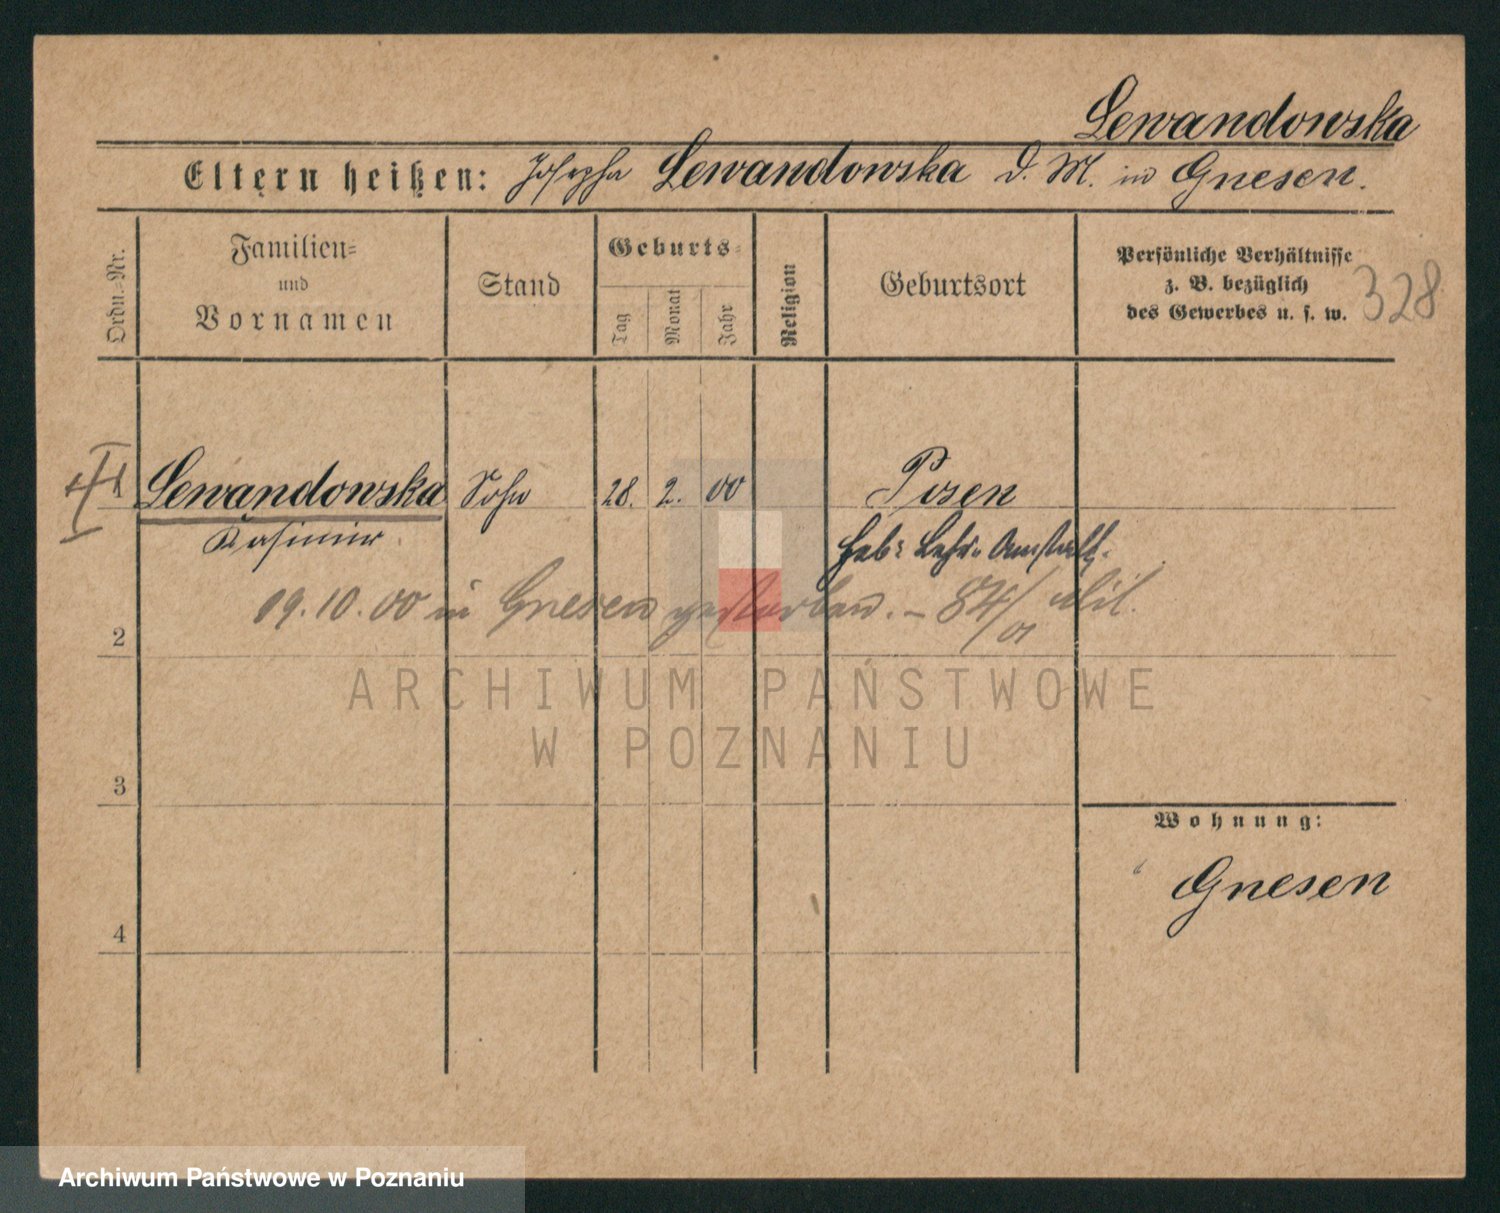 Lewandowska
Eltern heißen: Josepha Lewandowska D. M. in Gnesen.
Ordn.-Nr.
Familien- und Vornamen
Stand
Geburts-
Tag
Monat
Jahr
Religion
Geburtsort
Persönliche Verhältnisse
z. B. bezüglich
des Gewerbes u. s. w.
328
1 Lewandowska Sohn 28. 2. 00 Posen
Kasimir
Heb: Lehr-Anstalt.
19.10.00 in Gnesen gestorben. – 84/01 Mil.
2
ARCHIWUM PAŃSTWOWE
W POZNANIU
3
Wohnung:
Gnesen
4
Archiwum Państwowe w Poznaniu